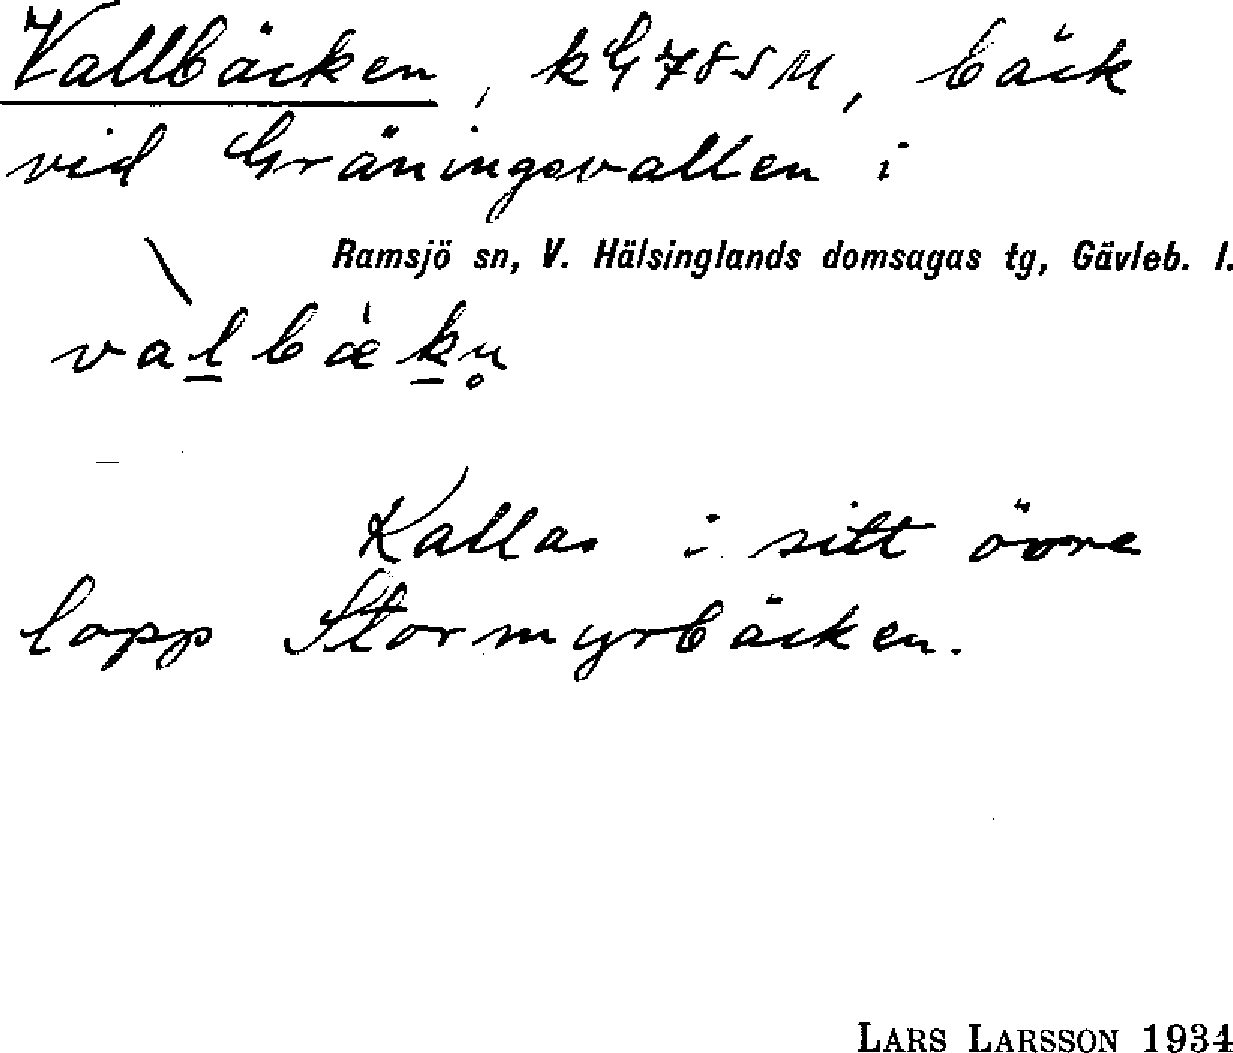 Vallbäcken, kG 785 M, bäck
vid Gräningsvallen i
Ramsjö sn, V. Hälsinglands domsagas tg, Gävleb. l.
val̲bæk̲n̥
Kallas i sitt övre
lopp Stormyrbäcken.
LARS LARSSON 1934